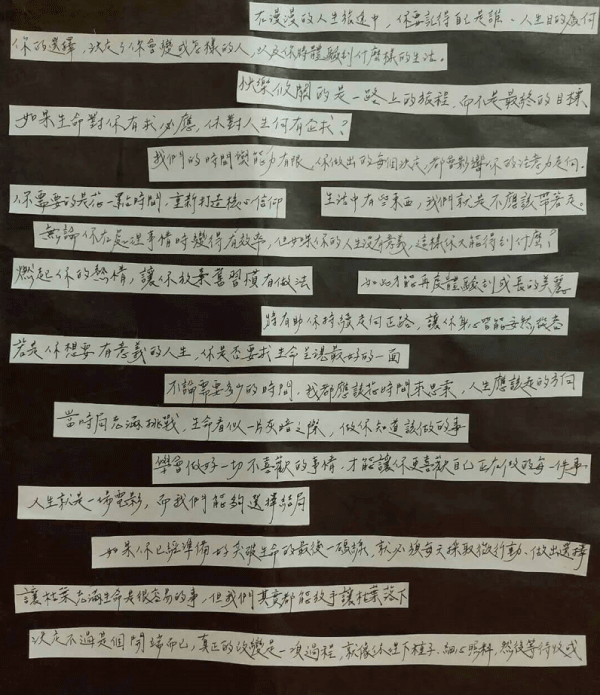 在漫漫的人生旅途中，你要記得自己是誰、人生目的為何
你的選擇，決定了你會變成怎樣的人，以及你將體驗到什麼樣的生活。
快樂攸關的是一路上的旅程，而不是最終的目標
如果生命對你有求必應，你對人生何有企求？
我們的時間與能力有限，你做出的每個決定，都會影響你的注意力走向。
你需要的是花一點時間，重新打造核心信仰
生活中有些東西，我們就是不應該帶著走。
無論你在處理事情時變得有效率，但如果你的人生沒有意義，這樣你又能得到什麼？
燃起你的熱情，讓你放棄舊習慣有做法
如此才能再度體驗到成長的美麗
將有助你持續走向正路，讓你身心皆能安然從容
若是你想要有意義的人生，你是否要求生命呈現最好的一面
不論需要多少的時間，我都應該花時間來思索，人生應該走的方向
當時局充滿挑戰，生命看似一片灰暗之際，做你知道該做的事
學會做好一切不喜歡的事情，才能讓你更喜歡自己正在做的每一件事
人生就是一場電影，而我們能夠選擇結局
如果你已經準備好突破生命的最後一碼線，就必須每天採取行動、做出選擇
讓枯葉充滿生命是很容易的事，但我們其實都能放手讓枯葉落下
決定不過是個開端而已，真正的改變是一項過程，就像你種下種子、細心照料，然後等待收成